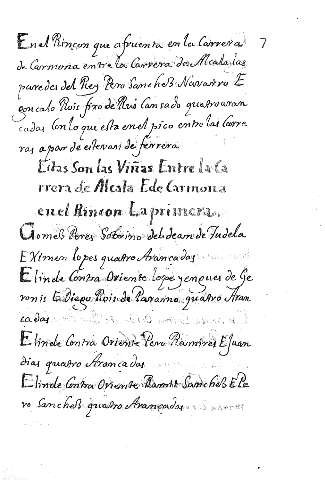 7
En el Rincon que afruenta en la Carrera
de Carmona entre la Carrera de Alcala las
paredes del Rey Pero Sancheß Navarro E
gonçalo Ruis fixo de Ruis Cansado quatro aran
cadas Con lo que esta en el pico entre las Carre
ras a par de estevan de ferrera
Estas Son las Viñas Entre la Ca
rrera de Alcala E de Carmona
en el Rincon La primera.
Gomeß Peres Sobrino del dean de Tudela
E Ximen lopes quatro Arancadas
E linde Contra Oriente lope yengues de Ge
ronis E Diego Rois de Paramo quatro Aran
cadas
E linde Contra Oriente Pero Ramires E Juan
dias quatro Arancadas
E linde Contra Oriente Sancheß E Pe
ro Sancheß quatro Arançadas